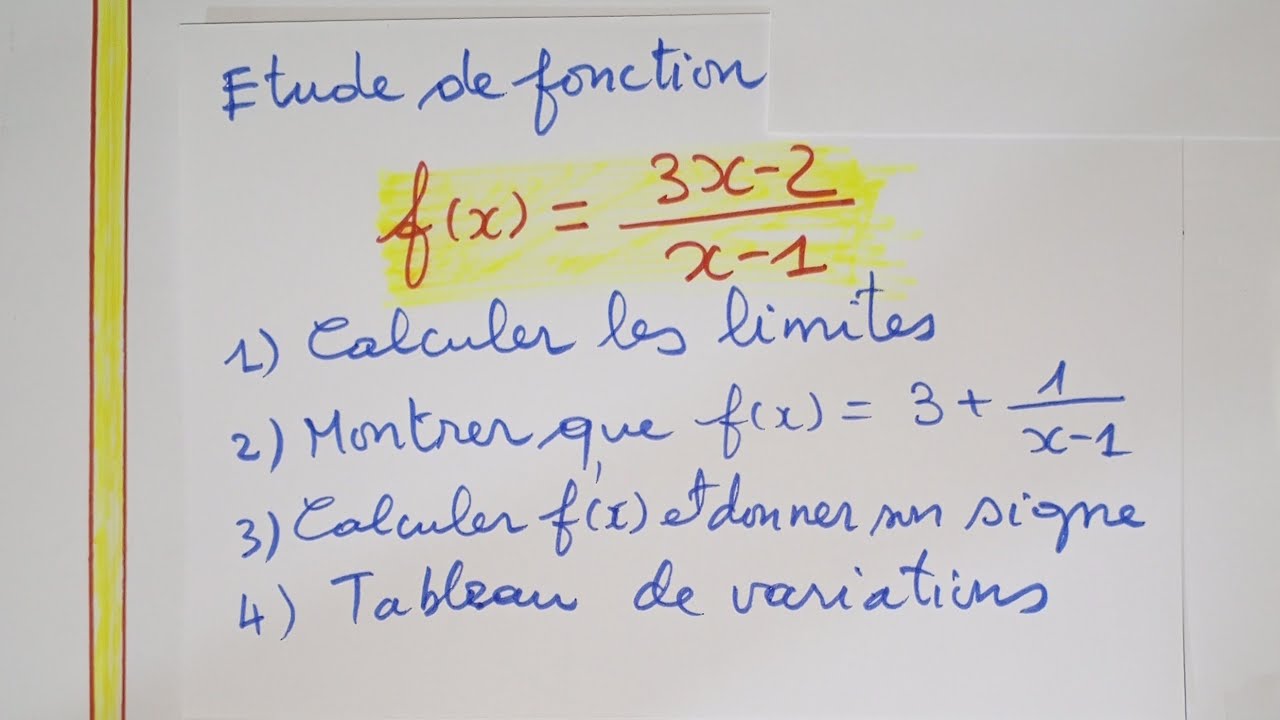 Etude de fonction
f(x) = \frac{3x-2}{x-1}
1) Calculer les limites
2) Montrer que f(x) = 3 + \frac{1}{x-1}
3) Calculer f'(x) et donner son signe
4) Tableau de variations